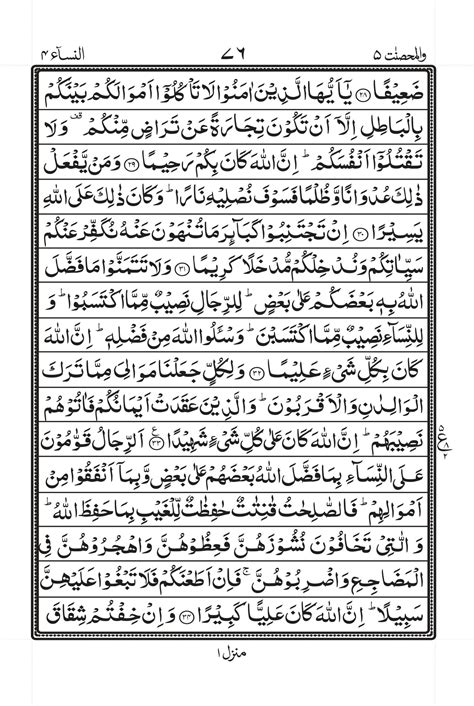 والمحصنٰت ۵ ۷۶ النسآء ۴
ضَعِيْفًا ﴿۲۸﴾ يٰۤاَيُّهَا الَّذِيْنَ اٰمَنُوْا لَا تَاْكُلُوْۤا اَمْوَالَكُمْ بَيْنَكُمْ
بِالْبَاطِلِ اِلَّاۤ اَنْ تَكُوْنَ تِجَارَةً عَنْ تَرَاضٍ مِّنْكُمْ ۫ وَلَا
تَقْتُلُوْۤا اَنْفُسَكُمْ ؕ اِنَّ اللّٰهَ كَانَ بِكُمْ رَحِيْمًا ﴿۲۹﴾ وَمَنْ يَّفْعَلْ
ذٰلِكَ عُدْوَانًا وَّظُلْمًا فَسَوْفَ نُصْلِيْهِ نَارًا ؕ وَكَانَ ذٰلِكَ عَلَى اللّٰهِ
يَسِيْرًا ﴿۳۰﴾ اِنْ تَجْتَنِبُوْا كَبَآئِرَ مَا تُنْهَوْنَ عَنْهُ نُكَفِّرْ عَنْكُمْ
سَيِّاٰتِكُمْ وَنُدْخِلْكُمْ مُّدْخَلًا كَرِيْمًا ﴿۳۱﴾ وَلَا تَتَمَنَّوْا مَا فَضَّلَ
اللّٰهُ بِهٖ بَعْضَكُمْ عَلٰى بَعْضٍ ؕ لِلرِّجَالِ نَصِيْبٌ مِّمَّا اكْتَسَبُوْا ؕ وَ
لِلنِّسَآءِ نَصِيْبٌ مِّمَّا اكْتَسَبْنَ ؕ وَسْـَٔلُوا اللّٰهَ مِنْ فَضْلِهٖ ؕ اِنَّ اللّٰهَ
كَانَ بِكُلِّ شَيْءٍ عَلِيْمًا ﴿۳۲﴾ وَلِكُلٍّ جَعَلْنَا مَوَالِيَ مِمَّا تَرَكَ
الْوَالِدٰنِ وَالْاَقْرَبُوْنَ ؕ وَالَّذِيْنَ عَقَدَتْ اَيْمَانُكُمْ فَاٰتُوْهُمْ
نَصِيْبَهُمْ ؕ اِنَّ اللّٰهَ كَانَ عَلٰى كُلِّ شَيْءٍ شَهِيْدًا ﴿۳۳﴾ اَلرِّجَالُ قَوّٰمُوْنَ
عَلَى النِّسَآءِ بِمَا فَضَّلَ اللّٰهُ بَعْضَهُمْ عَلٰى بَعْضٍ وَّبِمَاۤ اَنْفَقُوْا مِنْ
اَمْوَالِهِمْ ؕ فَالصّٰلِحٰتُ قٰنِتٰتٌ حٰفِظٰتٌ لِّلْغَيْبِ بِمَا حَفِظَ اللّٰهُ ؕ
وَالّٰتِيْ تَخَافُوْنَ نُشُوْزَهُنَّ فَعِظُوْهُنَّ وَاهْجُرُوْهُنَّ فِي
الْمَضَاجِعِ وَاضْرِبُوْهُنَّ ۚ فَاِنْ اَطَعْنَكُمْ فَلَا تَبْغُوْا عَلَيْهِنَّ
سَبِيْلًا ؕ اِنَّ اللّٰهَ كَانَ عَلِيًّا كَبِيْرًا ﴿۳۴﴾ وَاِنْ خِفْتُمْ شِقَاقَ
منزل ۱